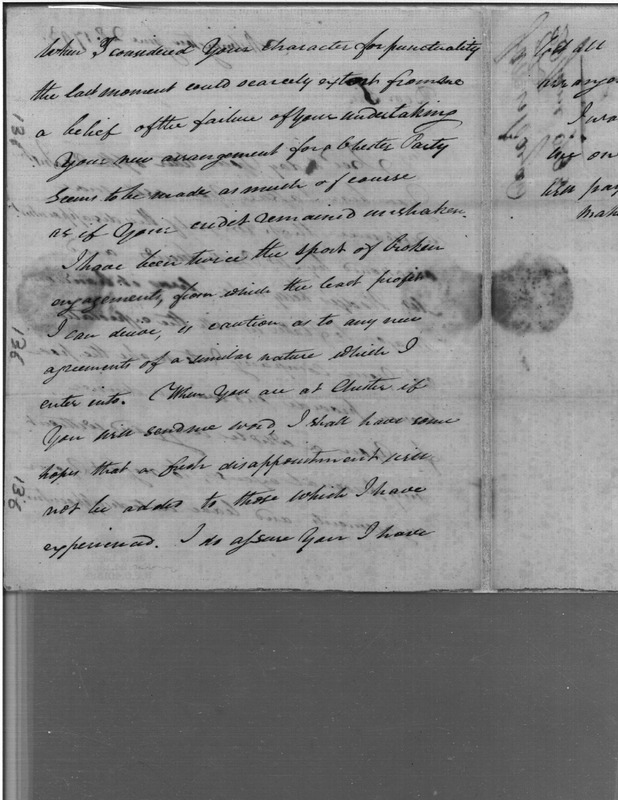 When I considered Your character for punctuality
the last moment could scarcely extort from me
a belief of the failure of Your undertaking
Your new arrangement for a Chester Party
seems to be made as much of course
as if Your credit remained unshaken.
I have been twice the sport of broken
engagements, from which the least profit
I can derive, is caution as to any new
agreements of a similar nature which I
enter into. When You are at Chester if
You will send me word, I shall have some
hopes that a fresh disappointment will
not be added to those which I have
experienced. I do assure You I have
Yet all
arrange
I wa
are on
been pay
make
136
136
136